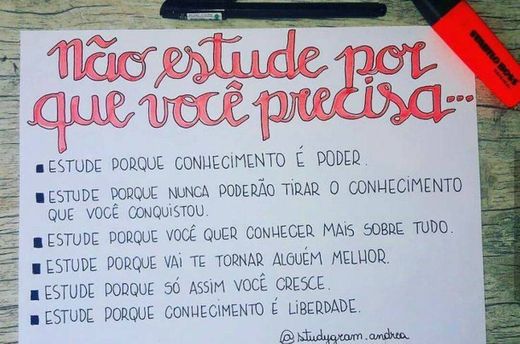 não estude por
que você precisa...
ESTUDE PORQUE CONHECIMENTO É PODER.
ESTUDE PORQUE NUNCA PODERÃO TIRAR O CONHECIMENTO
QUE VOCÊ CONQUISTOU.
ESTUDE PORQUE VOCÊ QUER CONHECER MAIS SOBRE TUDO.
ESTUDE PORQUE VAI TE TORNAR ALGUÉM MELHOR.
ESTUDE PORQUE SÓ ASSIM VOCÊ CRESCE.
ESTUDE PORQUE CONHECIMENTO É LIBERDADE.
@studygram.andrea
STABILO BOSS